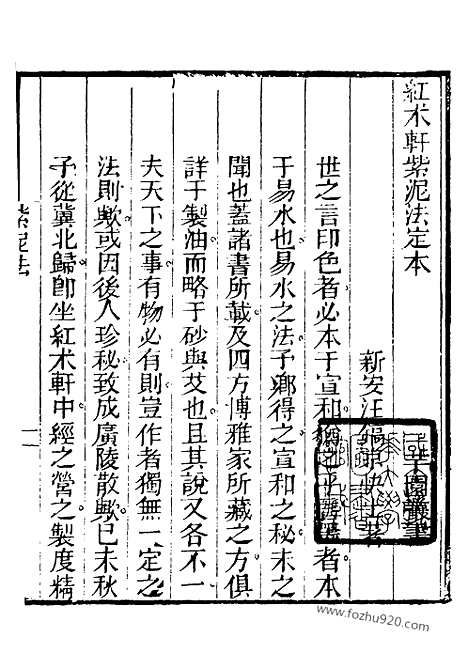 紅朮軒紫泥法定本
新安汪鎬京快士著
世之言印色者必本于宣和猶之乎墨者本
于易水也易水之法予鄉得之宣和之秘未之
聞也蓋諸書所載及四方博雅家所藏之方俱
詳于製油而略于砂與艾也且其說又各不一
夫天下之事有物必有則豈作者獨無一定之
法則歟或因後人珍秘致成廣陵散歟已未秋
予從冀北歸卽坐紅朮軒中經之營之製度精
紫泥法
一
www.fozhu920.com